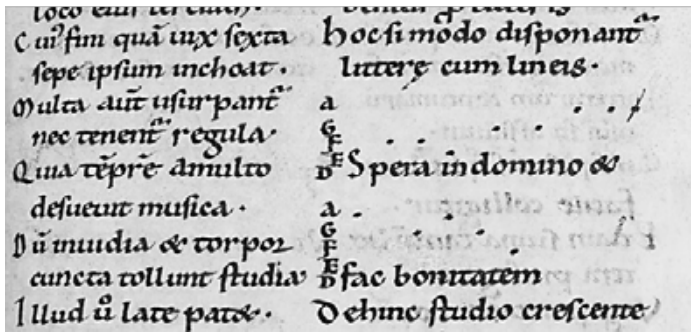 Cui' fini quā uix sexta
sepe ipsum inchoat·
Multa aut̄ usurpant̄
nec tenent̄ regula·
Quia tēpr̄e amulto
desuerut musica·
Dū inuidia & torpor
cuncta tollunt studia
Illud u̇ late pat&·
hoc si modo disponant̄
litterę cum lineis·
a
G
F
E
D Spera in domino &
a
G
F
E
D fac bonitatem
Dehinc studio crescente